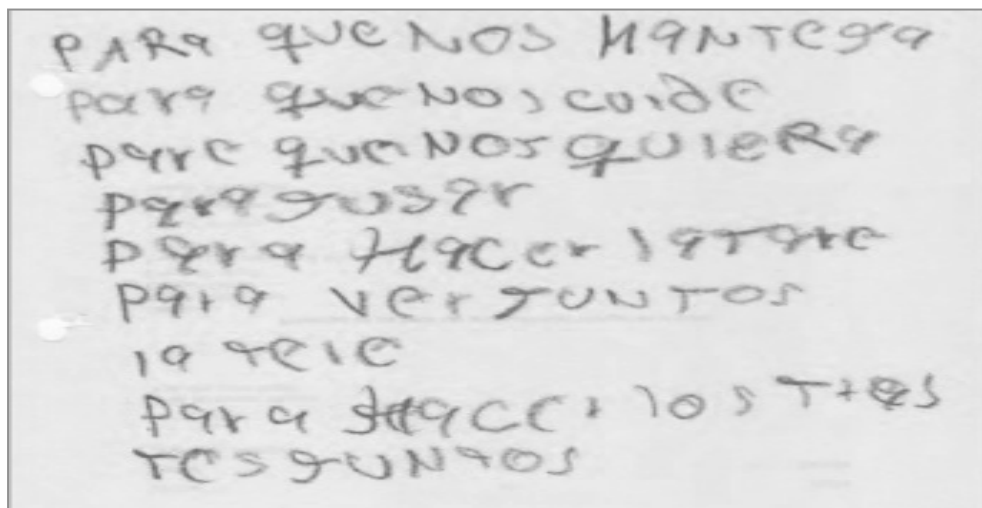 PARA QUE NOS MANTEGA
para que NOS cuide
para que NOS QUIERA
para gusar
para Hacer la tare
para ver guNTOS
la tele
para Hacer los T
TES guNTOS